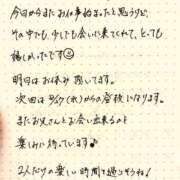 今日からまたお仕事始まったと思うけど、
その中でも、少しでも会いに来てくれて、とっても
嬉しかったです
明日はお休み頂いてます。
次回は9/7(水)からの登校になります。
またお兄さんとお会い出来るの
楽しみに待ってます♪
2人だけの楽しい時間を過ごそうね!